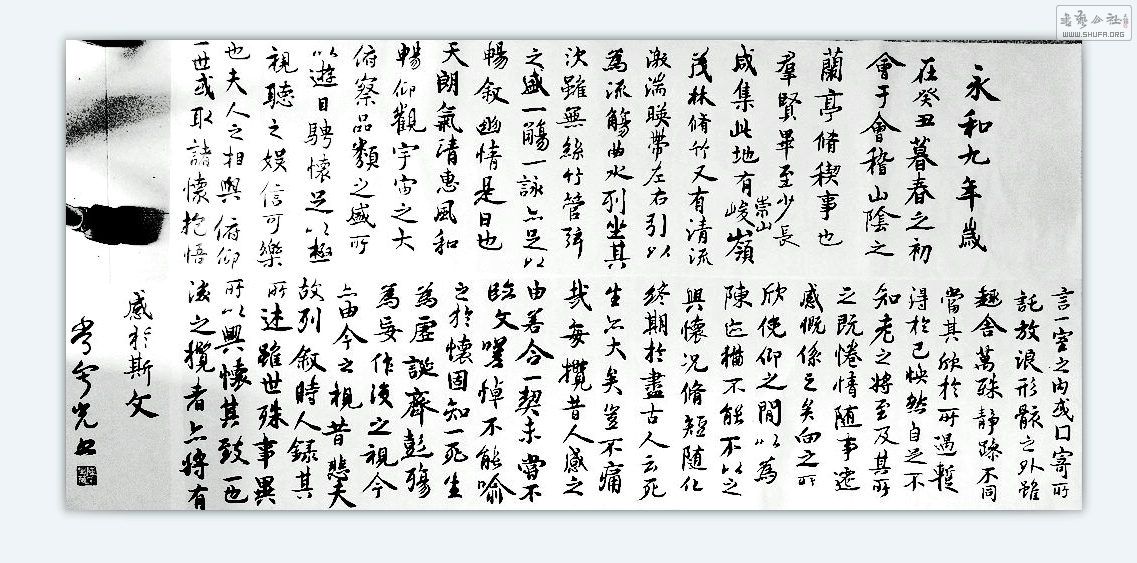 永和九年歲
在癸丑暮春之初
會于會稽山陰之
蘭亭脩稧事也
羣賢畢至少長
咸集此地有崇山峻嶺
茂林脩竹又有清流
激湍暎帶左右引以
為流觴曲水列坐其
次雖無絲竹管弦
之盛一觴一詠亦足以
暢敘幽情是日也
天朗氣清惠風和
暢仰觀宇宙之大
俯察品類之盛所
以遊目騁懷足以極
視聽之娛信可樂
也夫人之相與俯仰
一世或取諸懷抱悟
言一室之內或因寄所
託放浪形骸之外雖
趣舍萬殊靜躁不同
當其欣於所遇暫
得於己怏然自足不
知老之將至及其所
之既惓情隨事遷
感慨係之矣向之所
欣俛仰之間以為
陳迹猶不能不以之
興懷況脩短隨化
終期於盡古人云死
生亦大矣豈不痛
哉每攬昔人感之
由若合一契未嘗不
臨文嗟悼不能喻
之於懷固知一死生
為虛誕齊彭殤
為妄作後之視今
亦由今之視昔悲夫
故列敘時人錄其
所述雖世殊事異
所以興懷其致一也
後之攬者亦將有
感於斯文
光書
书艺公社
WWW.SHUFA.ORG